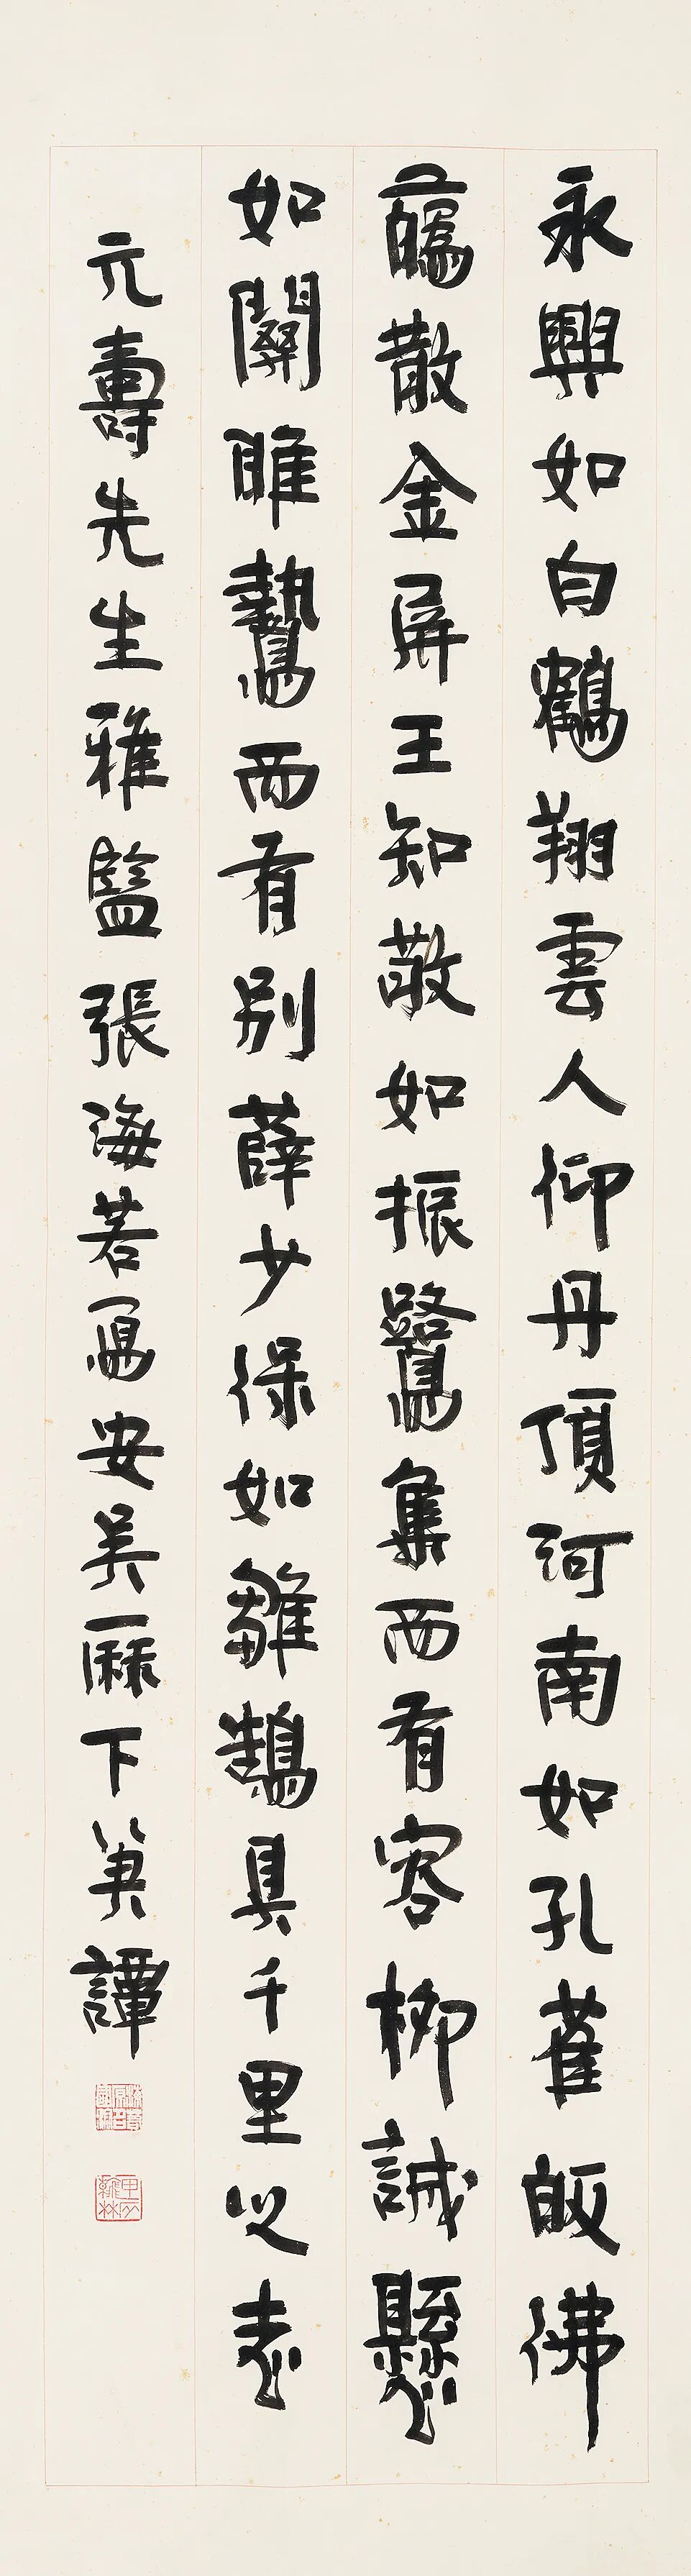 永興如白鶴翔雲人仰丹頂河南如孔雀皈佛
蘤散金屏王知敬如振鷺集而有容柳誠懸
如關雎鷙而有別薛少保如雛鵠具千里之志
元壽先生雅監張海若寫安吳厤下筆譚